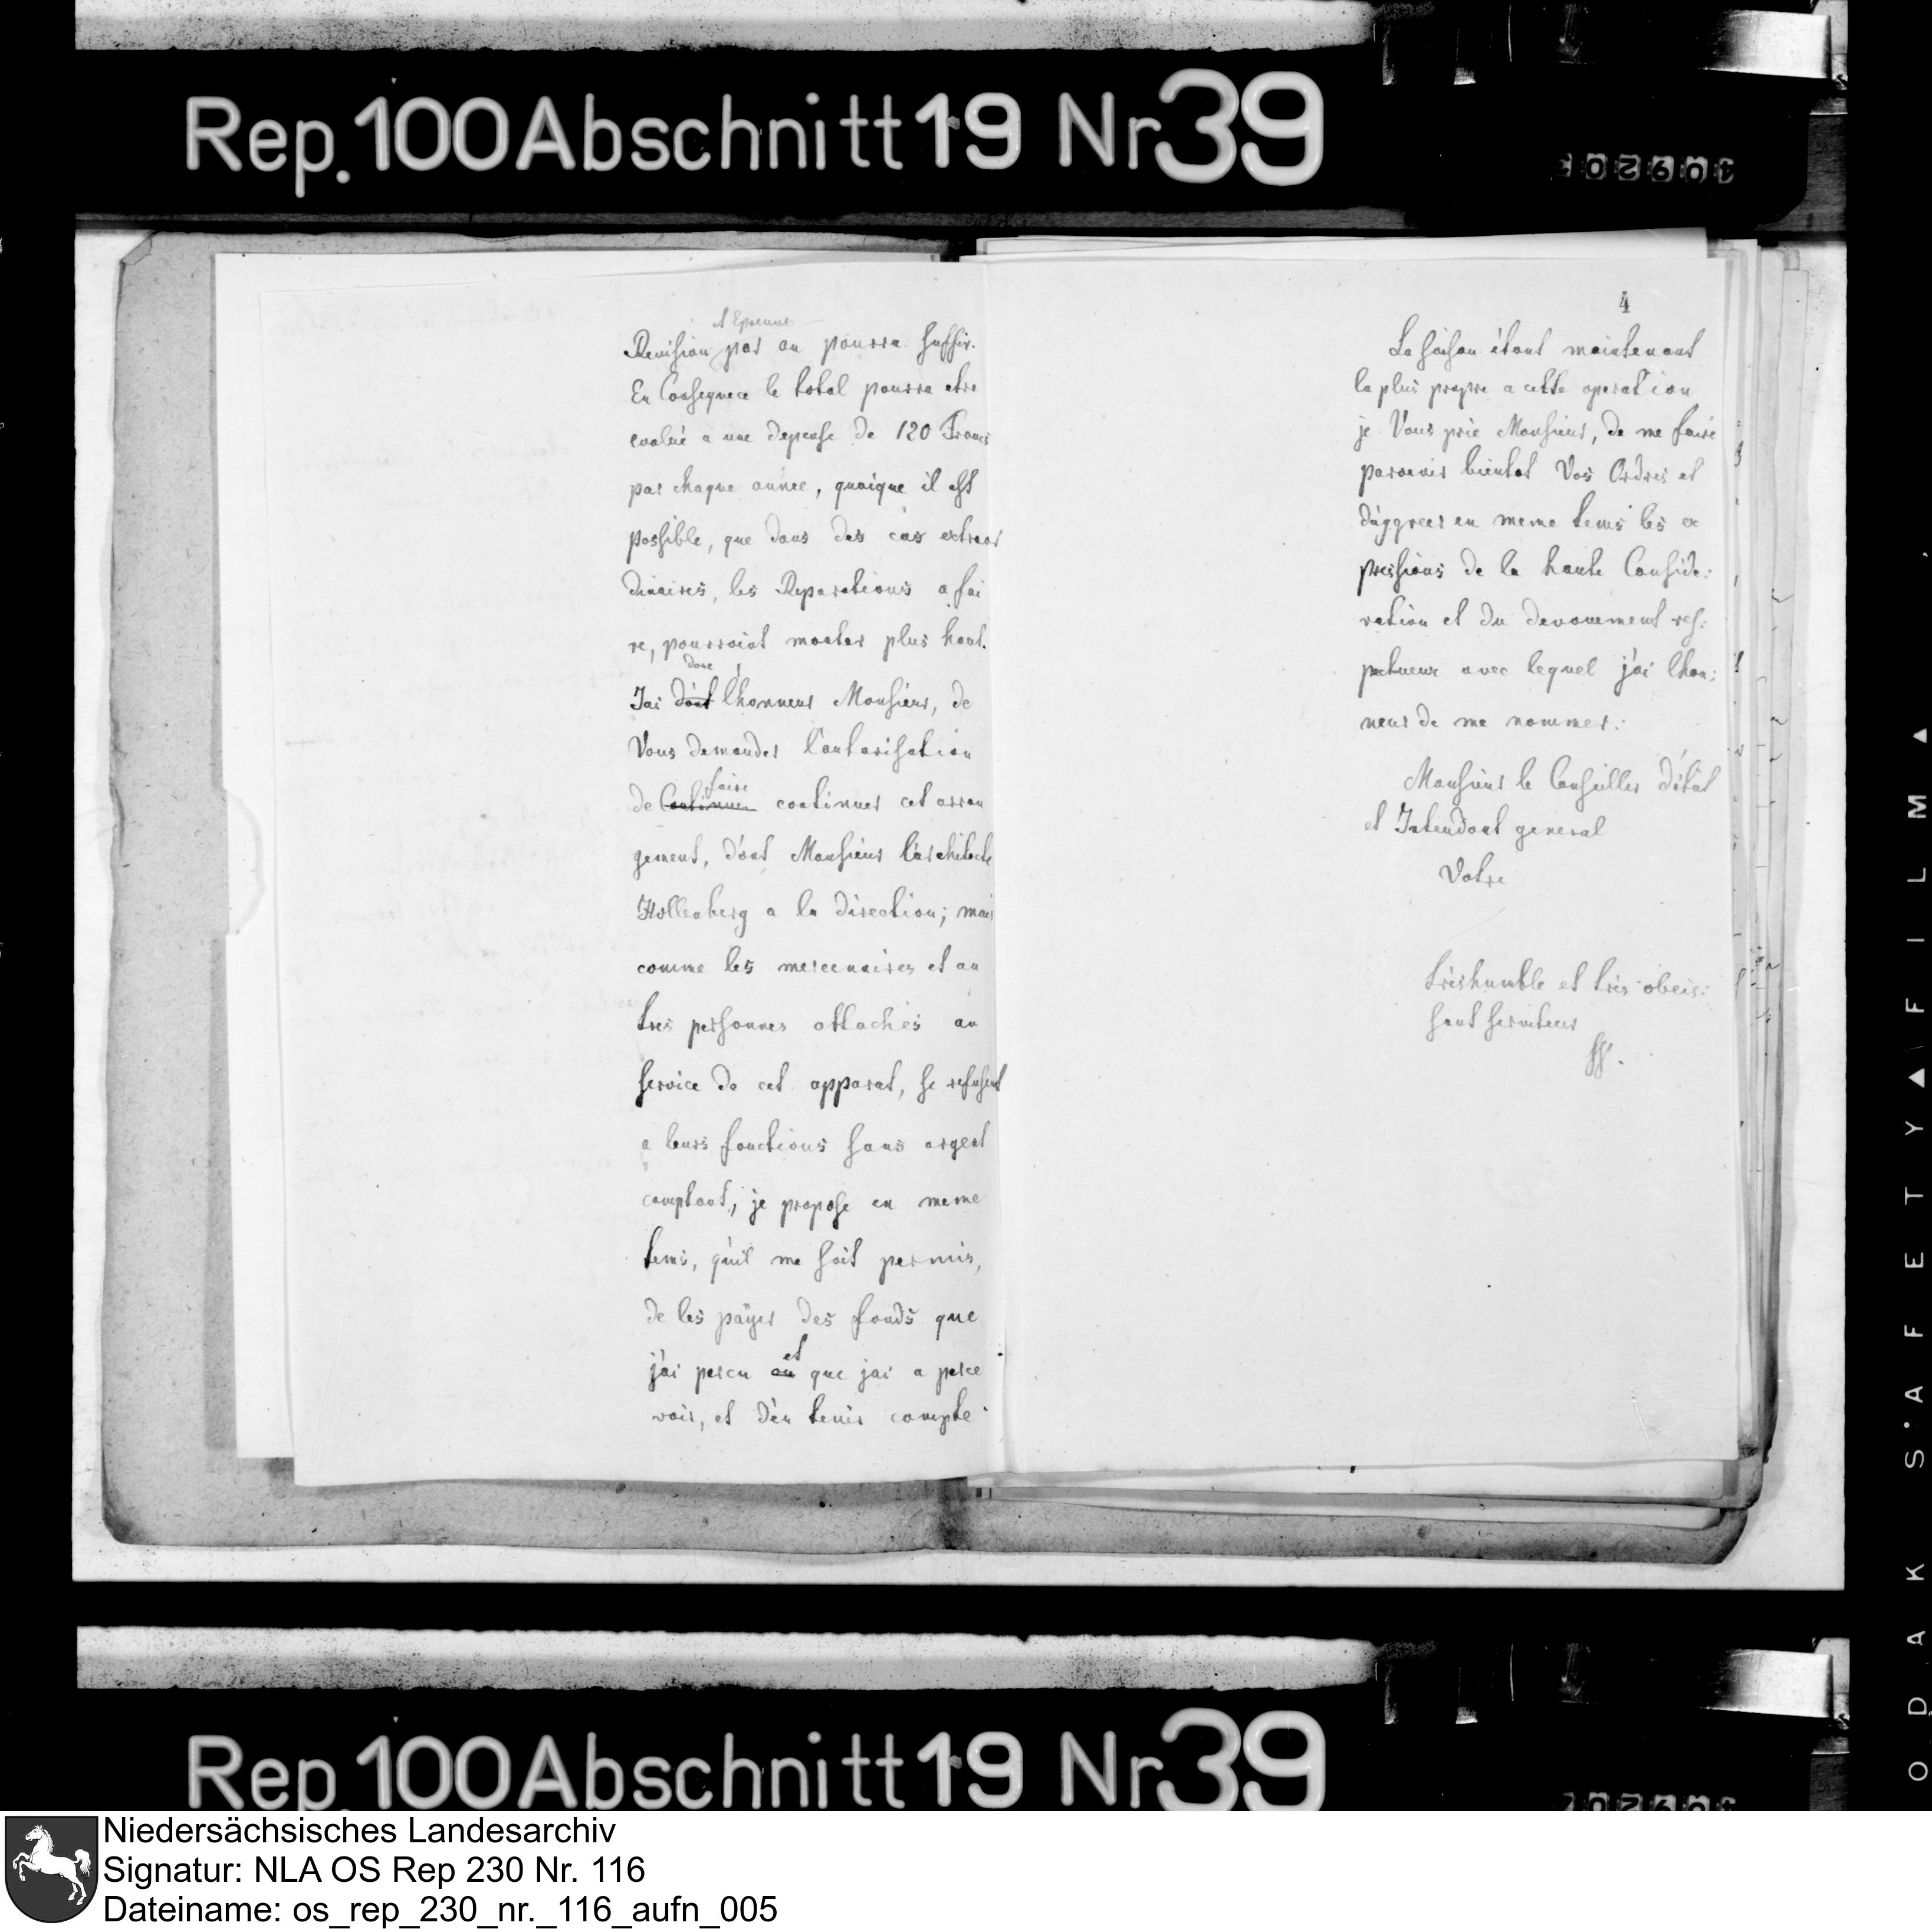 Rep.100 Abschnitt 19 Nr 39
Revision par an pourra suffir.
En Consequence le total pourra etre
evalué a une depense de 120 Francs
par chaque année, quoique il est
possible, que dans des cas extraor
dinaires, les Reparations a fai
re, pourroint monter plus haut.
donc
J'ai dont l'honneur Monsieur, de
Vous demander l'autorisation
faire
de Continuer continuer cet arran
gement, dont Monsieur l'architecte
Hollenberg a la direction; mais
comme les mercenaires et au
tres personnes attachés au
service de cet apparat, se refusent
a leurs fonctions sans argent
comptant, je propose en meme
tems, qu'il me soit permis,
de les päyer des fonds que
et
j'ai percu ou que jai a perce
voir, et d'en tenir compte.
4
La saison étant maintenant
la plus propre a cette operation
je Vous prie Monsieur, de me faire
parvenir bientot Vos Ordres et
d'aggreer en meme tems les ex
pressions de la haute Conside:
ration et du devouement res:
pectueux avec lequel j'ai lhon:
neur de me nommer:
Monsieur le Conseiller d'état
et Intendant general
Votre
trèshumble et très obeis:
sant serviteur
Rep.100 Abschnitt 19 Nr 39
KODAK S'AFETY FILM
Niedersächsisches Landesarchiv
Signatur: NLA OS Rep 230 Nr. 116
Dateiname: os_rep_230_nr._116_aufn_005